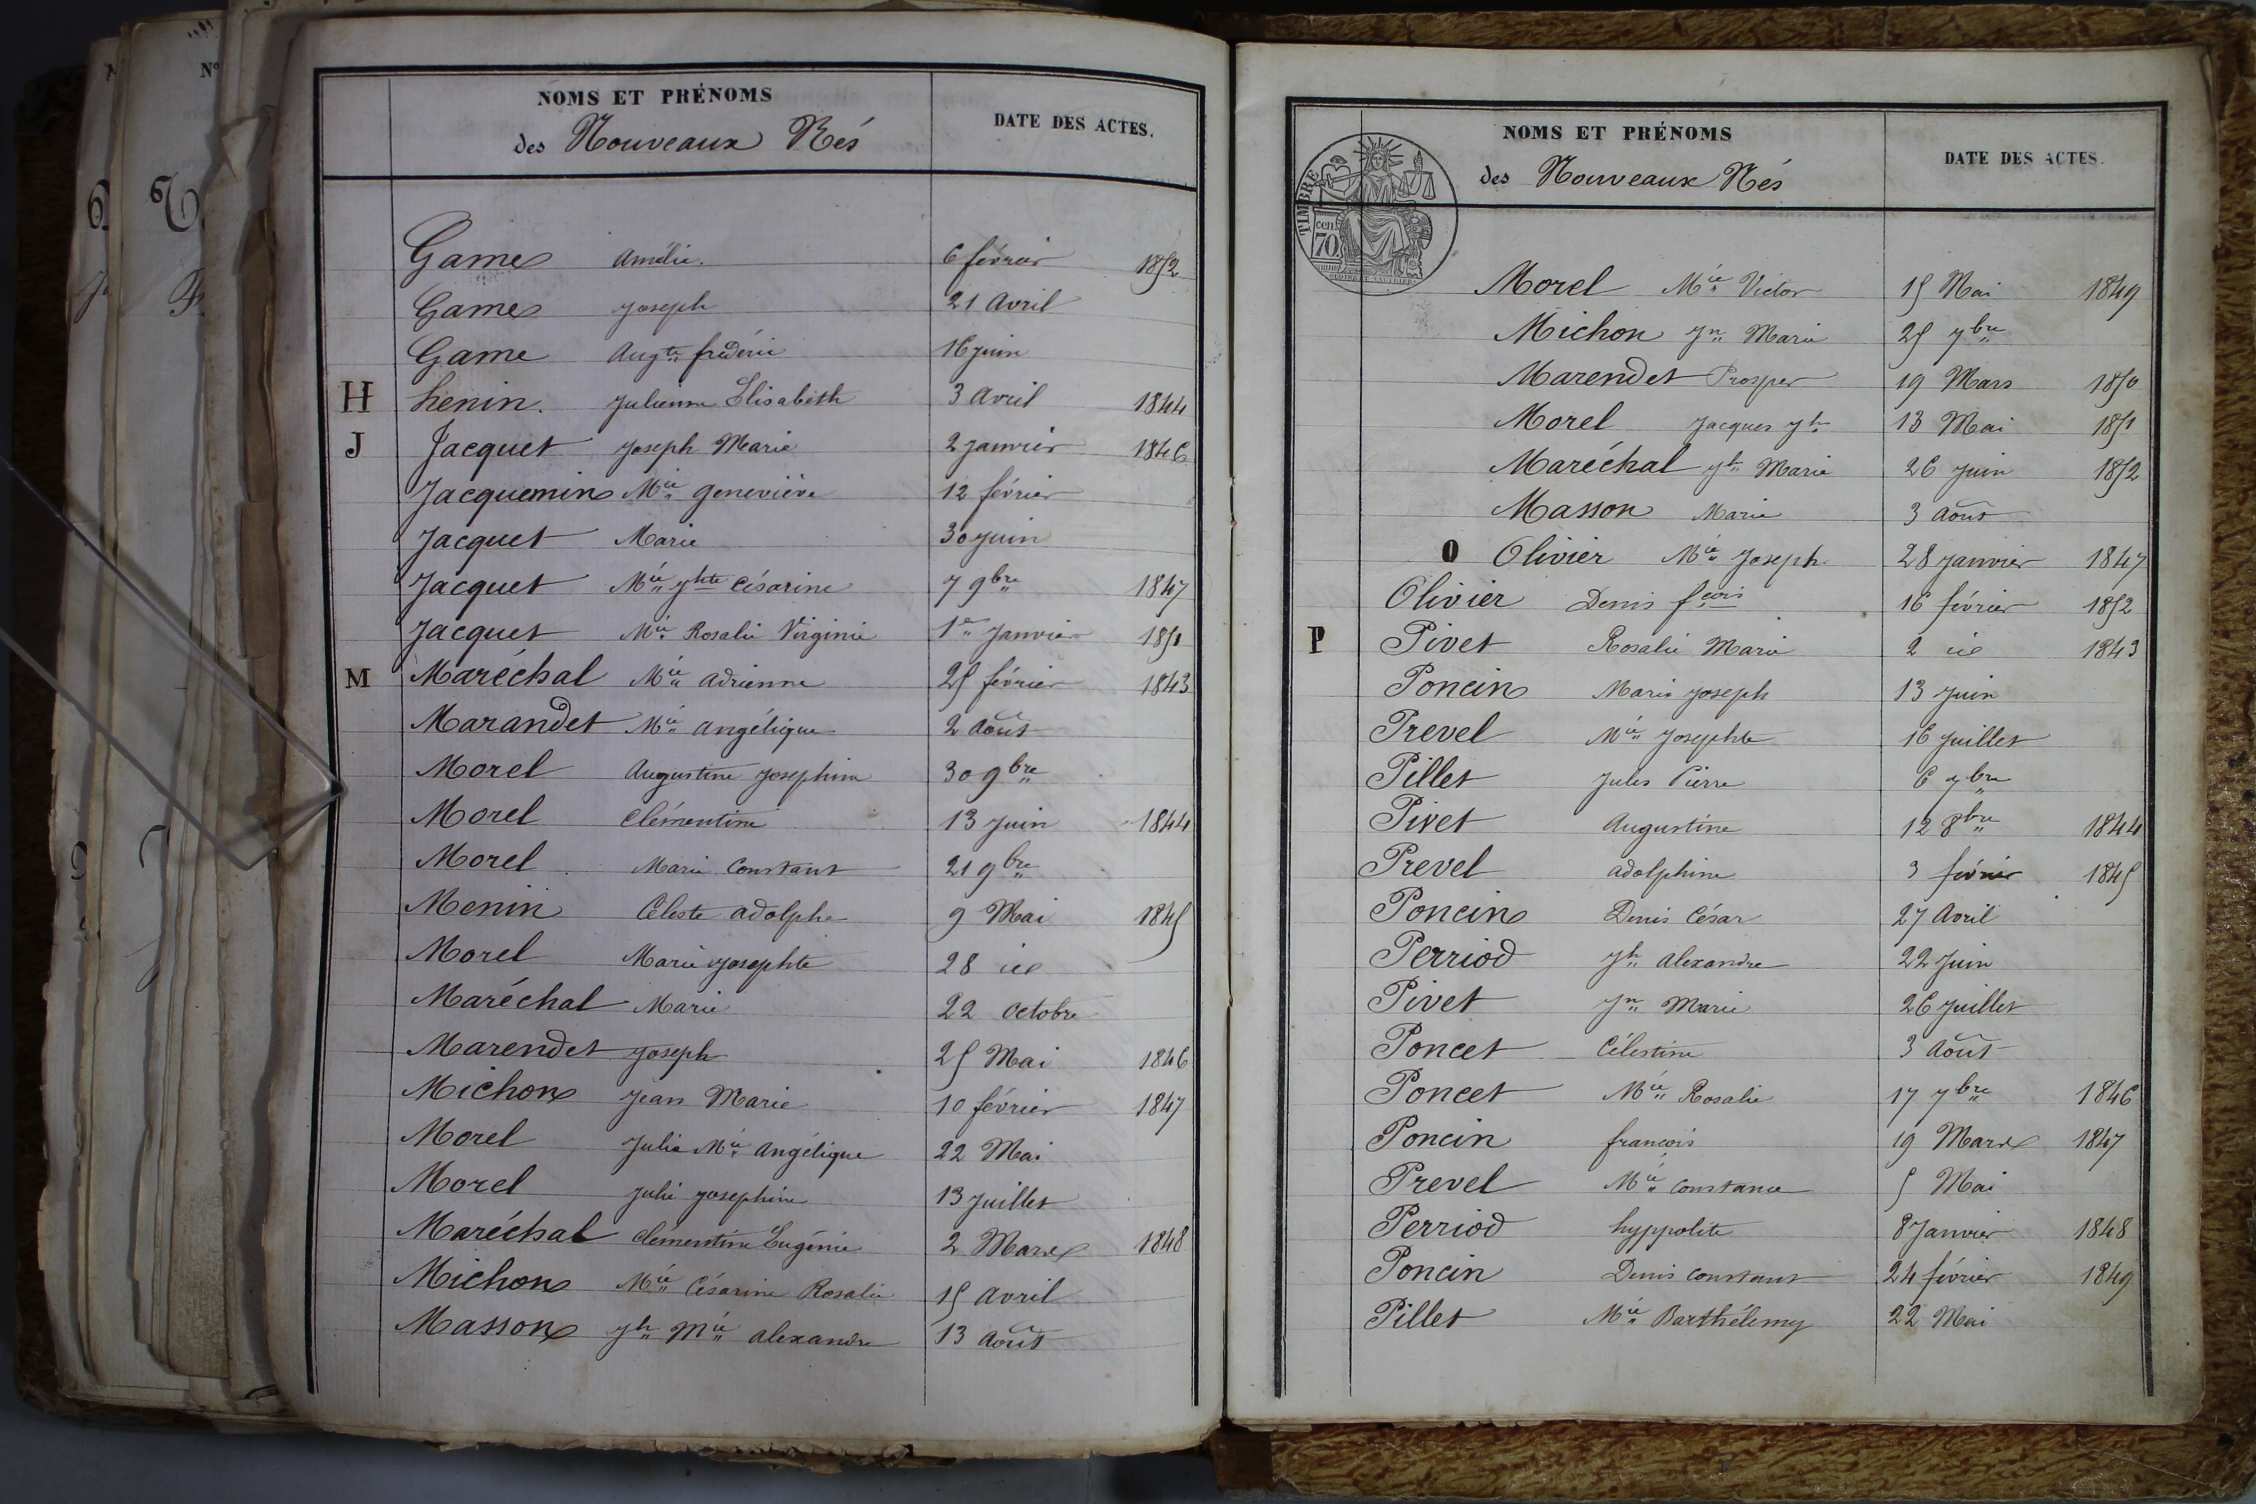 NOMS ET PRÉNOMS
des Nouveaux Nés
DATE DES ACTES.
Game Amélie. 6 février 1852
Game Joseph 21 Avril
Game Augte frédéric 16 juin
H henin. Julienne Elisabeth 3 Avril 1844
J Jacquet Joseph Marie 2 janvier 1846
Jacquemin Mie Geneviève 12 février
Jacquet Marie 30 juin
Jacquet Mie Jhte Césarine 7 9bre 1847
Jacquet Mie Rosalie Virginie 1er Janvier 1851
M Maréchal Mie Adrienne 25 février 1843
Marandet Mie Angélique 2 Août
Morel Augustine Josephine 30 9bre
Morel Clémentine 13 juin 1844
Morel Marie Constant 21 9bre
Menin Céleste Adolphe 9 Mai 1845
Morel Marie Josephte 28 id
Maréchal Marie 22 Octobre
Marendet Joseph 25 Mai 1846
Michon Jean Marie 10 février 1847
Morel Julie Mie Angélique 22 Mai
Morel Julie Josephine 13 juillet
Maréchal Clémentine Eugénie 2 Mars 1848
Michon Mie Césarine Rosalie 15 Avril
Masson Jh Mie Alexandre 13 Août
NOMS ET PRÉNOMS
des Nouveaux Nés
DATE DES ACTES.
TIMBRE
cen.
70
Morel Mie Victor 15 Mai 1849
Michon Jn Marie 25 7bre
Marendet Prosper 19 Mars 1850
Morel Jacques Jh 13 Mai 1851
Maréchal Jh Marie 26 juin 1852
Masson Marie 3 Août
O Olivier Mie Joseph 28 janvier 1847
Olivier Denis fçois 16 février 1852
P Pivet Rosalie Marie 2 id 1843
Poncin Marie Joseph 13 juin
Prevel Mie Josephte 16 juillet
Pillet Jules Pierre 6 7bre
Pivet Augustine 12 8bre 1844
Prevel Adolphine 3 février 1845
Poncin Denis César 27 Avril
Perriod Jh Alexandre 22 Juin
Pivet Jn Marie 26 juillet
Poncet Célestine 3 Août
Poncet Mie Rosalie 17 7bre 1846
Poncin françois 19 Mars 1847
Prevel Mie Constance 5 Mai
Perriod hyppolite 8 Janvier 1848
Poncin Denis Constant 24 février 1849
Pillet Mie Barthélemy 22 Mai